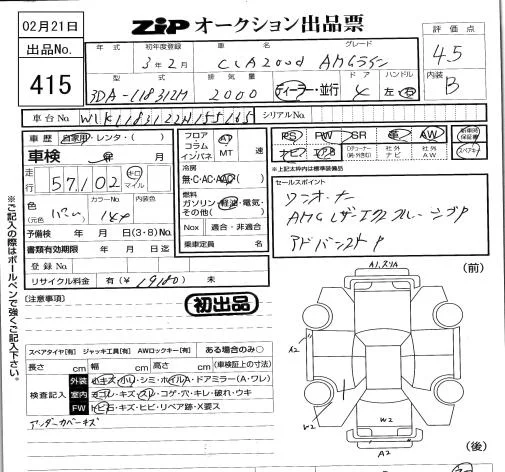 02月21日
ZIPオークション出品票
評価点
4.5
内装
B
出品No.
415
年式 初年度登録 車名 グレード
3年2月 CLA200d AMGライン
型式 排気量 ドア ハンドル
3DA-118312M 2000 ディーラー・並行 4 左・右
車台No. W1K1183122N155165 シリアルNo.
車歴 自家用・レンタ・( )
車検 年 月
走行 57,102 キロ マイル
色 (元色 ) カラーNo. 149 内装色
予備検 年 月 日(3・8)No.
書類有効期限 年 月 日迄
登録No.
リサイクル料金 有(¥ 19180) 未
フロア コラム インパネ AT MT 速
冷房 無・C・AC・AAC
燃料 ガソリン・軽油・電気・その他( )
Nox 適合・非適合
乗車定員 名
PS PW SR 革 AW 新車時保証書
ナビ エアB Dチューナー(純・外別) 社外ナビ 社外AW スペアキー
*上記太枠内は標準装備品
セールスポイント
ワンオーナー
AMGレザーエクスクルーシブP
アドバンスドP
※ご記入の際はボールペンで強くご記入下さい。
[注意事項]
初出品
スペアタイヤ[有] ジャッキ工具[有] AWロックキー[有] ある場合のみ○
長さ cm 幅 cm 高さ cm (車検証上の寸法)
検査記入
外装 小キズ・小U・シミ・ホイルA・ドアミラー(A・ワレ)
室内 ヨゴレ・キズ・スレ・コゲ・穴・キレ・破れ・ウキ
FW トビ石・キズ・ヒビ・リペア跡・X要ス
アンダーカバーキズ
(前)
A1,スリA
A2
W2
W2
A2
(後)